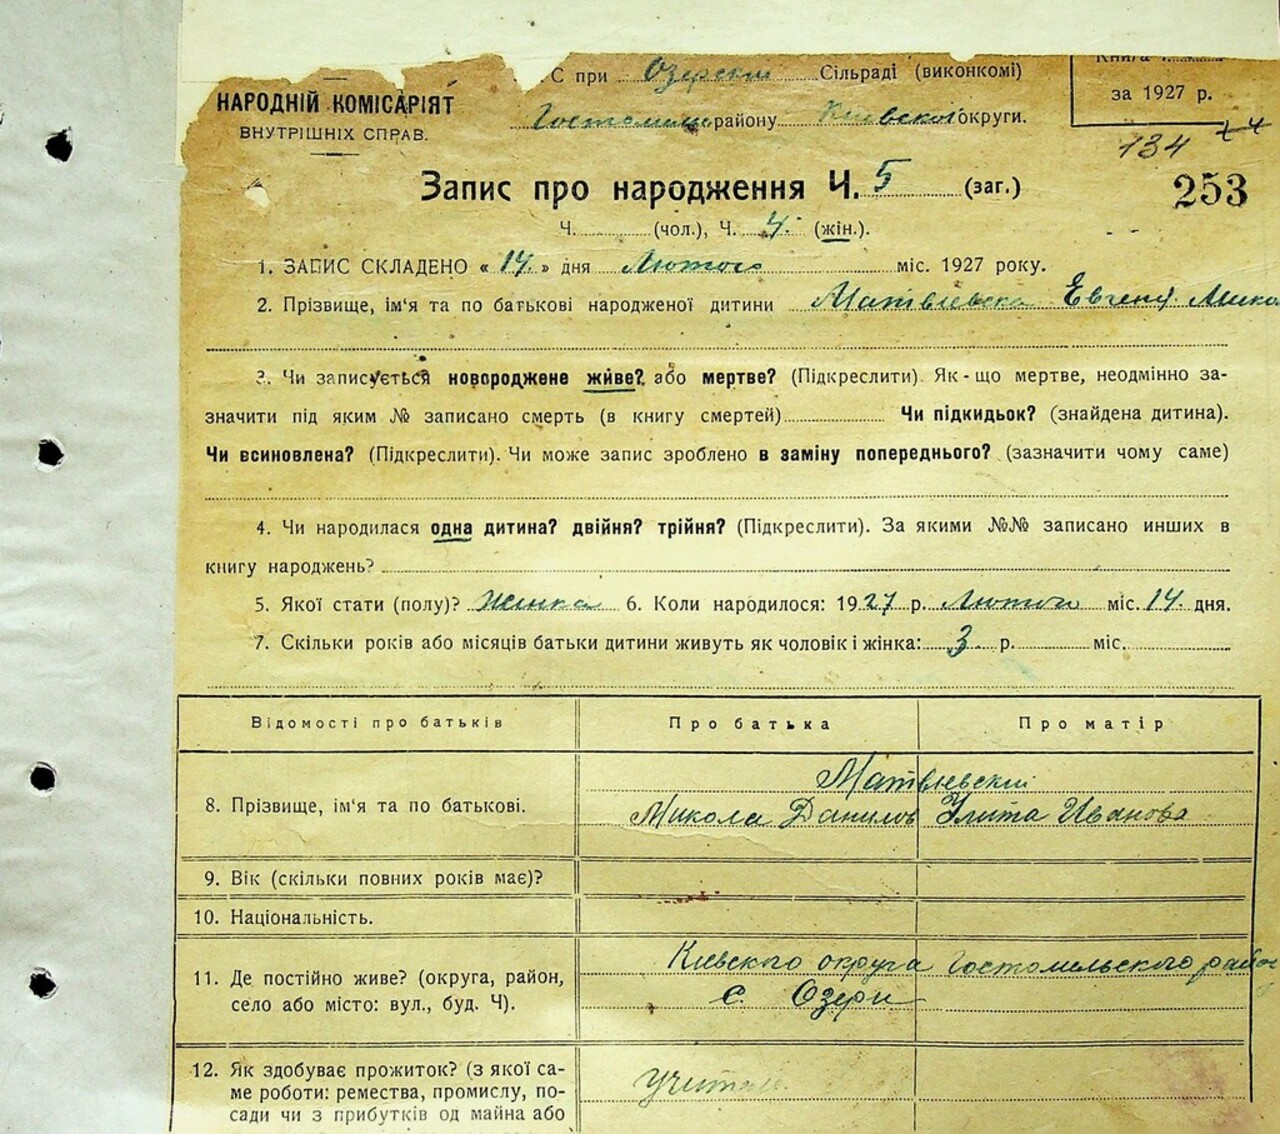 С при Озерский Сільраді (виконкомі)
Книга
НАРОДНІЙ КОМІСАРІЯТ
за 1927 р.
ВНУТРІШНІХ СПРАВ.
району Киівскоі округи.
134
Запис про народження Ч. 5 (заг.)
253
Ч. (чол.), Ч. 4. (жін.).
1. ЗАПИС СКЛАДЕНО « 14. » дня Лютого міс. 1927 року.
2. Прізвище, ім'я та по батькові народженої дитини Матвіевска Евгенія Мико
3. Чи записується новороджене живе? або мертве? (Підкреслити). Як-що мертве, неодмінно за-
значити під яким № записано смерть (в книгу смертей) Чи підкидьок? (знайдена дитина).
Чи всиновлена? (Підкреслити). Чи може запис зроблено в заміну попереднього? (зазначити чому саме)
4. Чи народилася одна дитина? двійня? трійня? (Підкреслити). За якими №№ записано инших в
книгу народжень?
5. Якої стати (полу)? Жінка 6. Коли народилося: 1927 р. Лютого міс. 14. дня.
7. Скільки років або місяців батьки дитини живуть як чоловік і жінка: 3 р. міс.
Відомості про батьків Про батька Про матір
Матвіевский
8. Прізвище, ім'я та по батькові. Микола Данилов Улита Иванова
9. Вік (скільки повних років має)?
10. Національність.
11. Де постійно живе? (округа, район, Киевского округа Гостомельского район
село або місто: вул., буд. Ч). с. Озери
12. Як здобуває прожиток? (з якої са-
ме роботи: ремества, промислу, по-
сади чи з прибутків од майна або